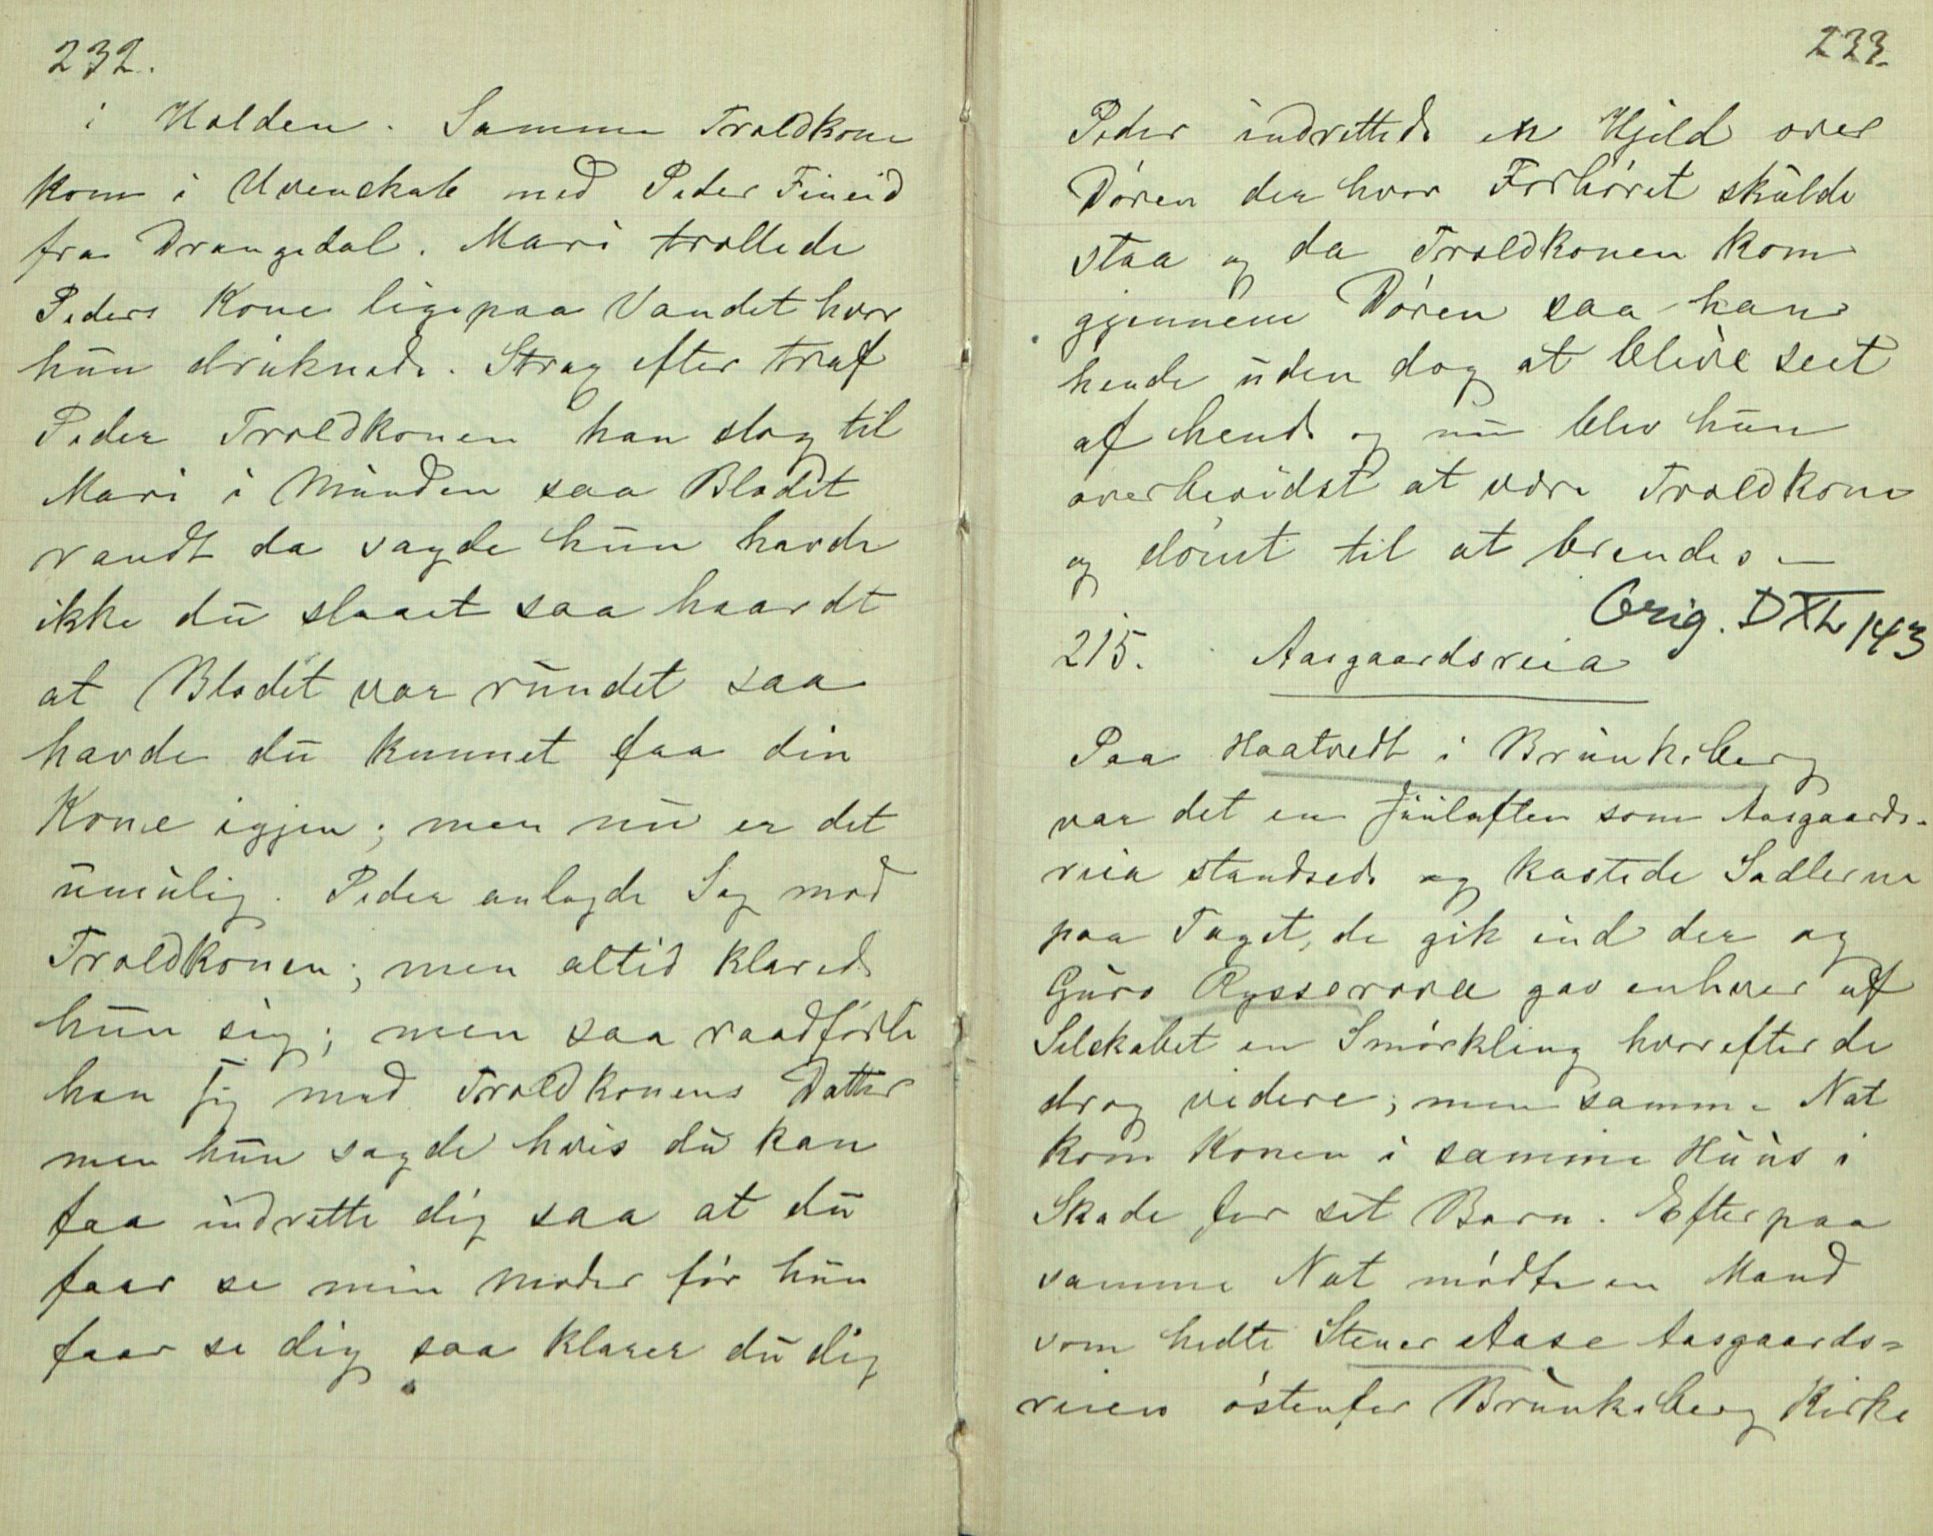 232.
i Holden. Samme Troldkone
kom i Uvenskab med Peder Fineid
fra Drangedal. Mari trollede
Peders Kone ligepaa Vandet hvor
hun druknede. Strax efter traf
Peder Troldkonen han slog til
Mari i Munden saa Blodet
randt da sagde hun havde
ikke du slaaet saa haardt
at Blodet var rundet saa
havde du kunnet faa din
Kone igjen; men nu er det
umulig. Peder anlagde Sag mod
Troldkonen; men altid klarede
hun sig; men saa raadførte
han sig med Troldkonens Datter
men hun sagde hvis du kan
faa indrette dig saa at du
faar se min Moder før hun
faar se dig saa klarer du dig
233.
Peder indrettede en Hjeld over
Døren der hvor Forhøret skulde
staa og da Troldkonen kom
gjennem Døren saa han
hende uden dog at blive seet
af hende og nu blev hun
overbevidst at være Troldkone
og dømt til at brendes —
Orig. DXL 143
215. Aasgaardsreia
Paa Haatvedt i Brunkeberg
var det en Juulaften som Aasgaards-
reia standsede og kastede Sadlerne
paa Taget, de gik ind der og
Guro Rysserova gav enhver af
Selskabet en Smørkling hvorefter de
drog videre; men samme Nat
kom Konen i samme Huus i
Skade for sit Barn. Efter paa
samme Nat mødte en Mand
som hedte Stener Aase Aasgaards=
reien østenfor Brunkeberg Kirke